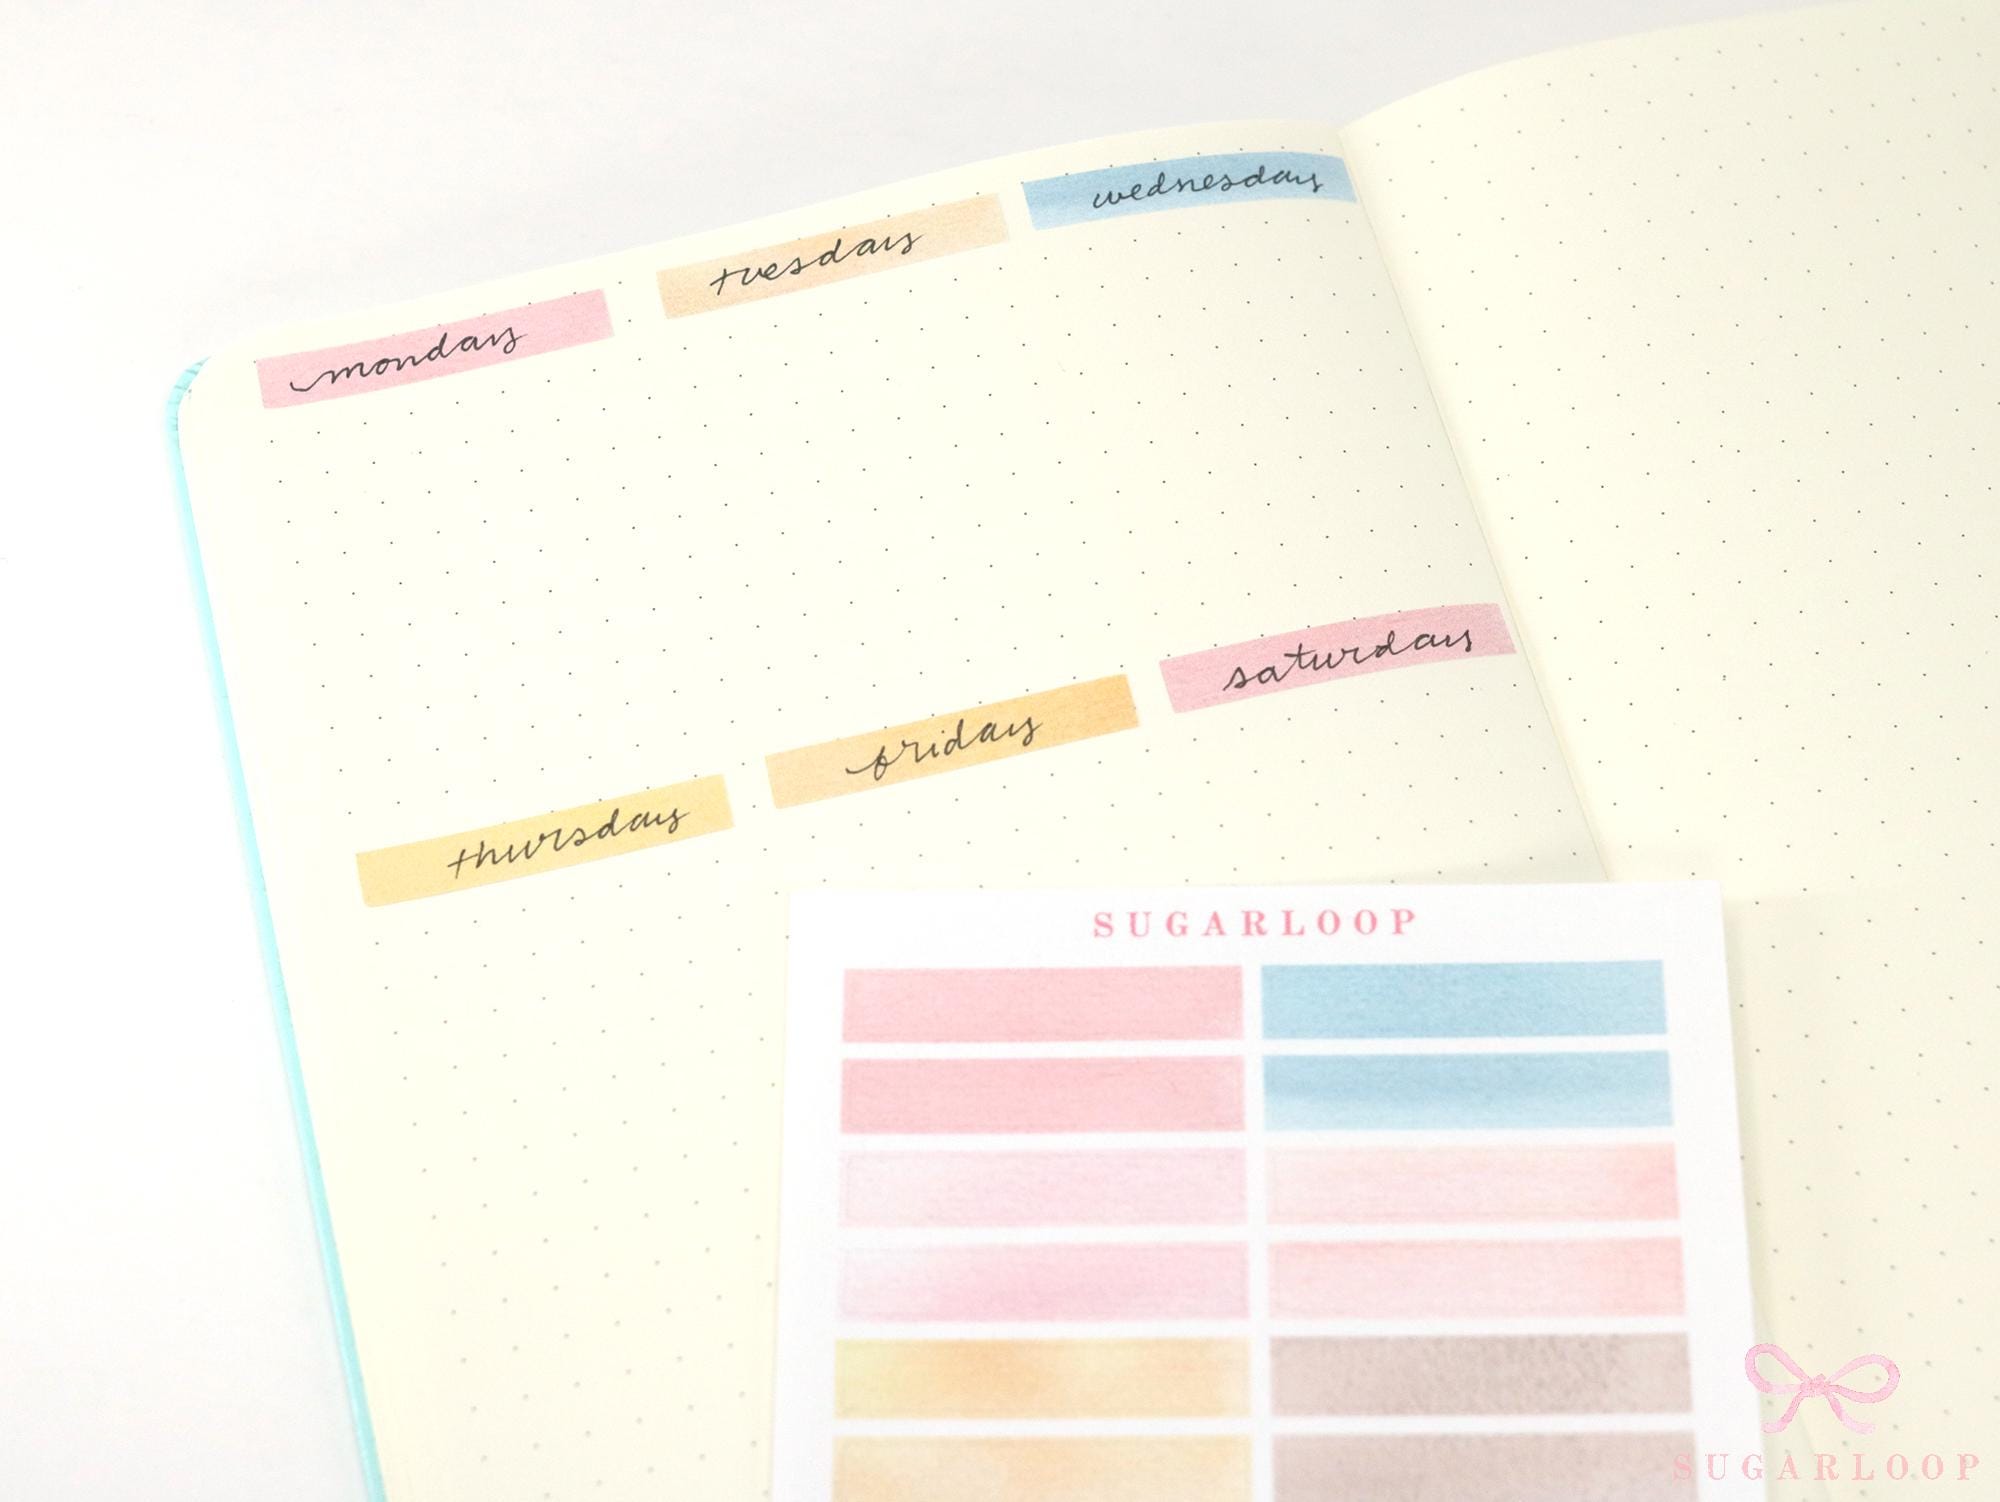 monday
tuesday
wednesday
thursday
friday
saturday
SUGARLOOP
SUGARLOOP